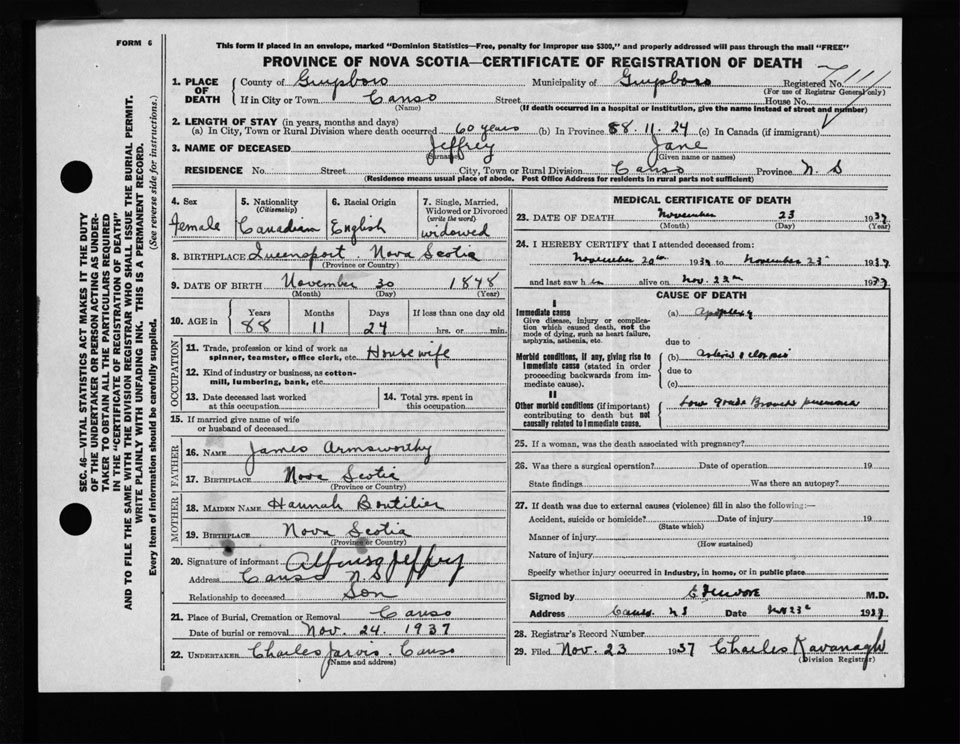 FORM 6
This form if placed in an envelope, marked "Dominion Statistics—Free, penalty for improper use $300," and properly addressed will pass through the mail "FREE"
PROVINCE OF NOVA SCOTIA—CERTIFICATE OF REGISTRATION OF DEATH
1. PLACE OF DEATH County of Guysboro Municipality of Guysboro Registered No.
(For use of Registrar General only)
If in City or Town Canso Street House No.
(Name) (If death occurred in a hospital or institution, give the name instead of street and number)
2. LENGTH OF STAY (in years, months and days)
(a) In City, Town or Rural Division where death occurred 60 years (b) In Province 88. 11. 24 (c) In Canada (if immigrant)
3. NAME OF DECEASED Jeffrey Jane
(Surname) (Given name or names)
RESIDENCE No. Street City, Town or Rural Division Canso Province N.S
(Residence means usual place of abode. Post Office Address for residents in rural parts not sufficient)
4. Sex Female
5. Nationality (Citizenship) Canadian
6. Racial Origin English
7. Single, Married, Widowed or Divorced (write the word) widowed
8. BIRTHPLACE Queensport. Nova Scotia
(Province or Country)
9. DATE OF BIRTH November 30 1848
(Month) (Day) (Year)
10. AGE in Years 88 Months 11 Days 24 If less than one day old hrs. or min.
OCCUPATION
11. Trade, profession or kind of work as spinner, teamster, office clerk, etc. Housewife
12. Kind of industry or business, as cotton-mill, lumbering, bank, etc.
13. Date deceased last worked at this occupation
14. Total yrs. spent in this occupation
15. If married give name of wife or husband of deceased
FATHER
16. NAME James Armsworthy
17. BIRTHPLACE Nova Scotia
(Province or Country)
MOTHER
18. MAIDEN NAME Hannah Boutilier
19. BIRTHPLACE Nova Scotia
(Province or Country)
20. Signature of informant Alfonso Jeffrey
Address Canso N.S
Relationship to deceased Son
21. Place of Burial, Cremation or Removal Canso
Date of burial or removal Nov. 24. 1937
22. UNDERTAKER Charles Jarvis. Canso
(Name and address)
MEDICAL CERTIFICATE OF DEATH
23. DATE OF DEATH November 23 1937
(Month) (Day) (Year)
24. I HEREBY CERTIFY that I attended deceased from:
November 20th 1937 to November 23rd 1937
and last saw h alive on Nov. 1937
CAUSE OF DEATH
I
Immediate cause
Give disease, injury or complication which caused death, not the mode of dying, such as heart failure, asphyxia, asthenia, etc.
(a) Apoplexy
due to
Morbid conditions, if any, giving rise to immediate cause (stated in order proceeding backwards from immediate cause).
(b)
due to
(c)
II
Other morbid conditions (if important) contributing to death but not causally related to immediate cause.
Low grade Broncho pneumonia
25. If a woman, was the death associated with pregnancy?
26. Was there a surgical operation? Date of operation 19
State findings Was there an autopsy?
27. If death was due to external causes (violence) fill in also the following:—
Accident, suicide or homicide? Date of injury 19
(State which)
Manner of injury
(How sustained)
Nature of injury
Specify whether injury occurred in industry, in home, or in public place
Signed by M.D.
Address Canso N S Date Nov 23 1937
28. Registrar's Record Number
29. Filed Nov. 23 1937 Charles Kavanagh
(Division Registrar)
SEC. 46—VITAL STATISTICS ACT MAKES IT THE DUTY
OF THE UNDERTAKER OR PERSON ACTING AS UNDERTAKER TO OBTAIN ALL THE PARTICULARS REQUIRED
IN THE "CERTIFICATE OF REGISTRATION OF DEATH"
AND TO FILE THE SAME WITH THE DIVISION REGISTRAR WHO SHALL ISSUE THE BURIAL PERMIT.
WRITE PLAINLY WITH UNFADING INK. THIS IS A PERMANENT RECORD.
Every item of information should be carefully supplied. (See reverse side for instructions.)